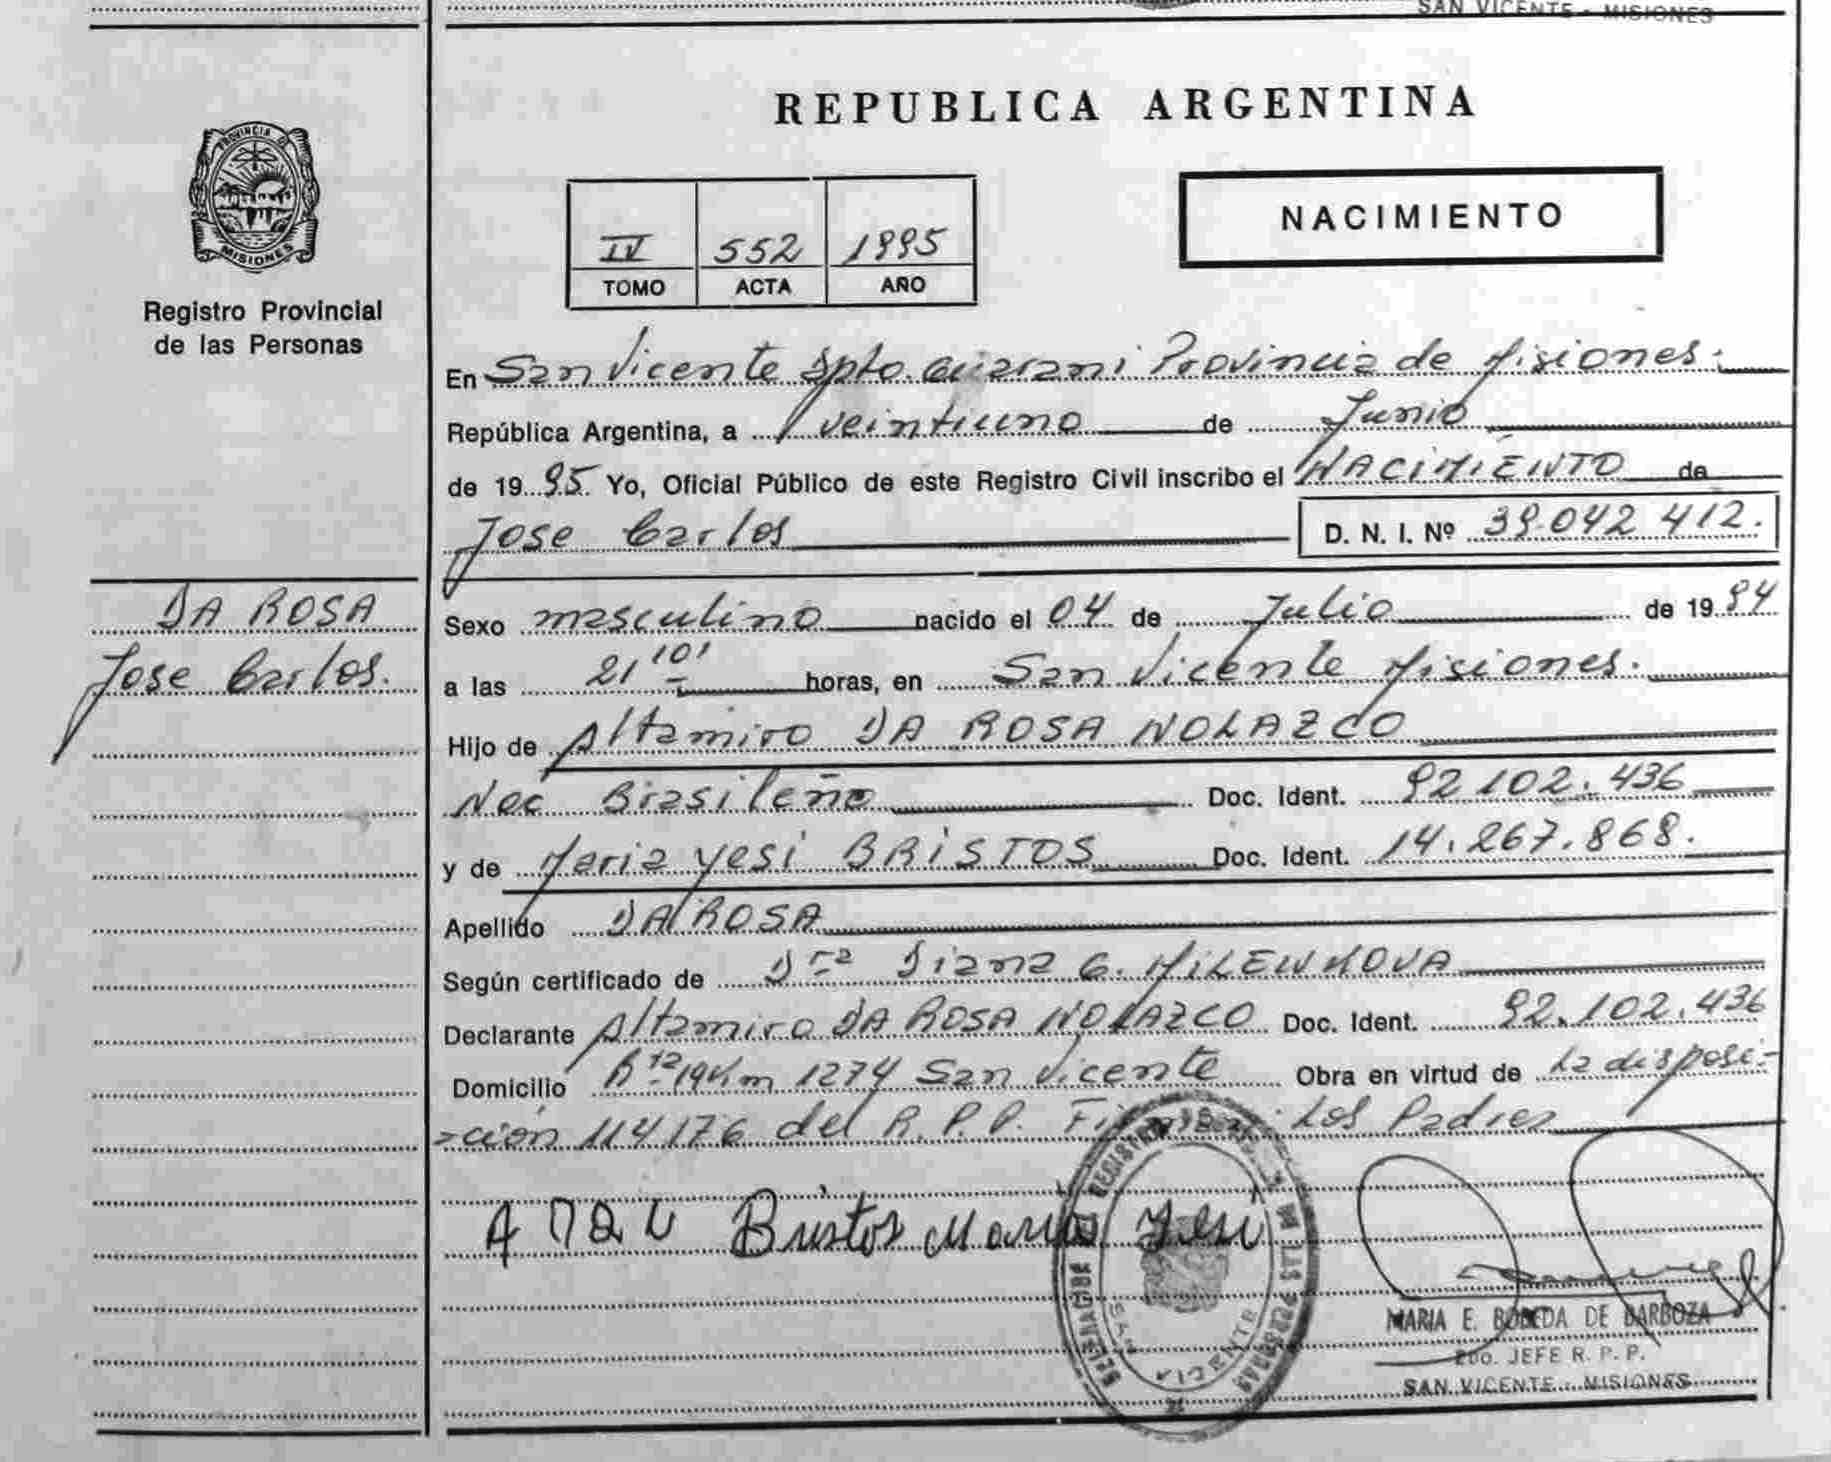 SAN VICENTE - MISIONES
REPUBLICA ARGENTINA
PROVINCIA DE
MISIONES
Registro Provincial
de las Personas
IV 552 1995
TOMO ACTA AÑO
NACIMIENTO
En San Vicente Dpto. Guarani Provincia de Misiones.
República Argentina, a veintiuno de Junio
de 19 95. Yo, Oficial Público de este Registro Civil inscribo el NACIMIENTO de
Jose Carlos D. N. I. Nº 39.042 412.
DA ROSA
Jose Carlos.
Sexo masculino nacido el 04 de Julio de 19 94
a las 21 10' horas, en San Vicente Misiones.
Hijo de Altamiro DA ROSA NOLAZCO
Nac Brasileño Doc. Ident. 92 102. 436
y de Maria Yesi BRISTOS Doc. Ident. 14.267.868.
Apellido DA ROSA
Según certificado de Dra Diana G. MILENNOVA
Declarante Altamiro DA ROSA NOLAZCO Doc. Ident. 92.102.436
Domicilio 1274 San Vicente Obra en virtud de La disposi-
-ción 114176 del R. P. P. Firman: Los Padres
Bristos Maria Yesi
SAN VICENTE
MARIA E. BOBEDA DE BARBOZA
2do. JEFE R. P. P.
SAN VICENTE - MISIONES